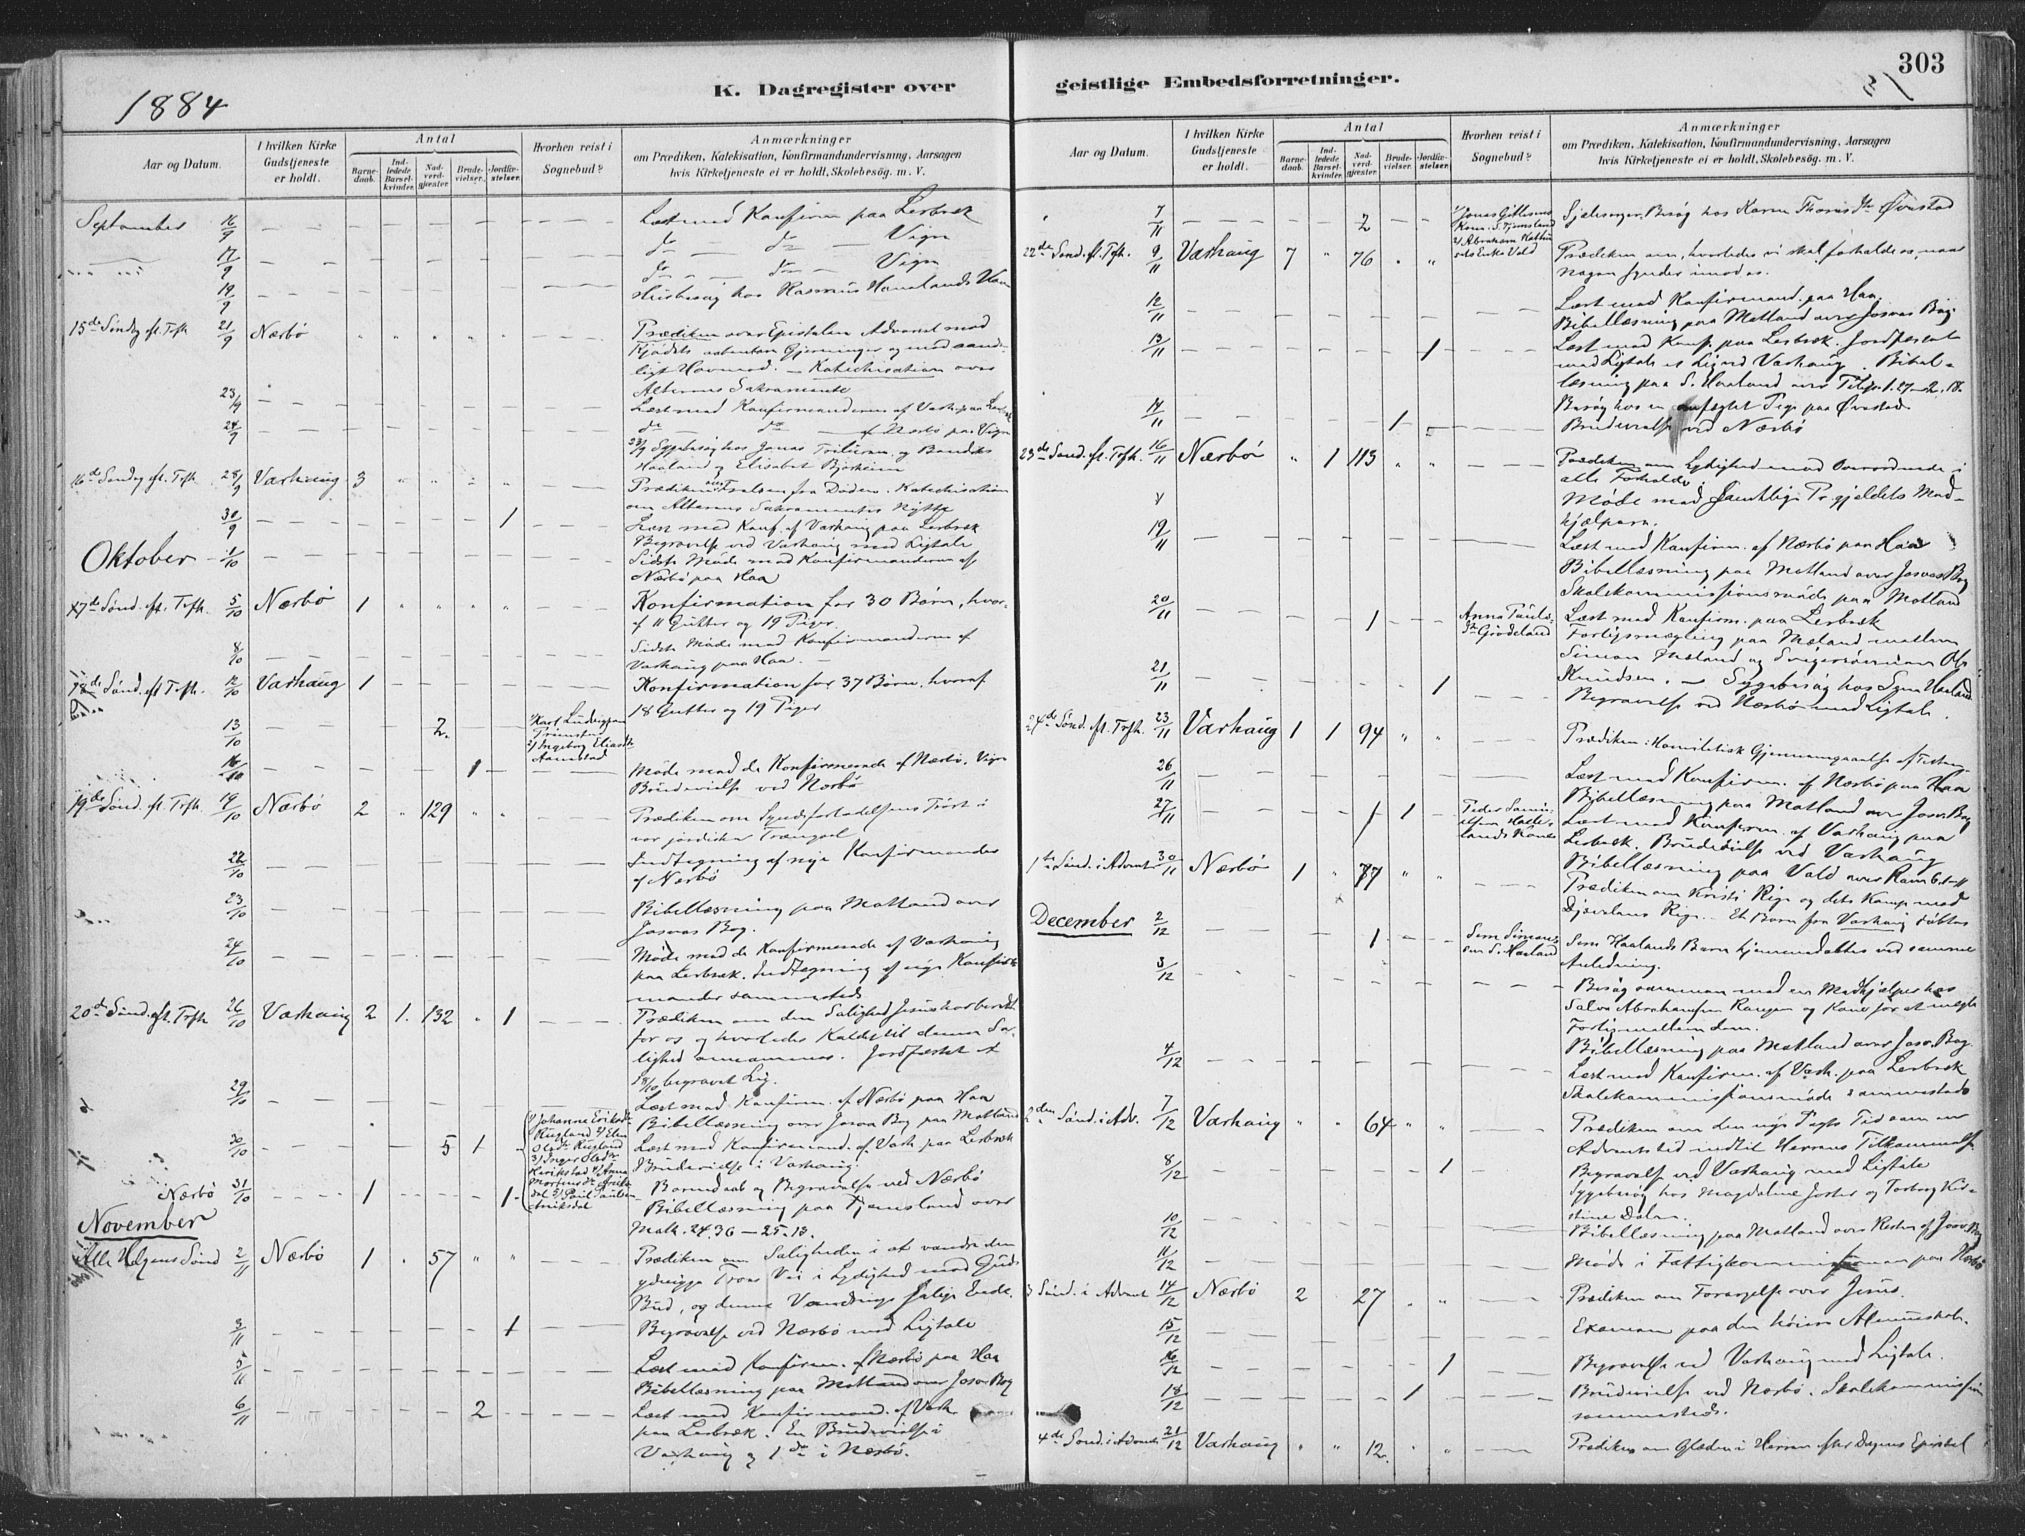 K. Dagregister over
1884
Aar og Datum.
I hvilken Kirke Gudstjeneste er holdt.
Antal
Barne-daab.
Ind-ledede Barsel-kvinder.
Nad-verd-gjæster.
Brude-vielser.
Jordfæ-stelser.
Hvorhen reist i Sognebud?
Anmærkninger
om Prædiken, Katekisation, Konfirmandundervisning, Aarsagen
hvis Kirketjeneste ei er holdt, Skolebesøg. m. V.
September 16/9 Læst med Konfirm paa Lerbræk
17/9 do do Vign
17/9 do do Vign
19/9 Husbesøg hos Rasmus
15de Søndg eft. Trfh 21/9 Nærbö Prædiken over Epistelen Advarsel mod
Kjødets Gjerninger og mod aande-
ligt Hovmod. – Katechisation over
Alterens Sakramente
23/9 Læst med Konfirmanderne af Varh. paa
24/9 do do af Nærbö paa Vign
Sygebesøg hos Jonas
Haaland og Elisabet Bjorheim
16de Søndag eft. Trfh 28/9 Varhaug 3 Prædiken over Frelsen fra Döden. Katechisation
om Alterens Sakramentes Nytte
30/9 1 Læst med Konf. af Varhaug paa Lerbræk
Begravelse ved Varhaug med Ligtale
Oktober 1/10 Sidste Møde med Konfirmanderne af
Nærbö paa Haa
17de Sönd. eft. Trfh. 5/10 Nærbö 1 Konfirmation for 30 Børn, hvor-
af 11 Gutter og 19 Piger.
8/10 Sidste Møde med Konfirmanderne af
Varhaug paa Haa.
18de Sönd. eft Trfh. 12/10 Varhaug 1 Konfirmation for 37 Børn, hvoraf
18 Gutter og 19 Piger
13/10 2 1/ Karl Ludvigsen
2/ Ingeborg
16/10 1 Møde med de Konfirmerede af Nærbö. Vign
Brudevielse ved Nærbö
19de Sönd. eft. Trfh. 19/10 Nærbö 2 129 Prædiken om Syndsforladelsens Tröst i
vor jordiske Trængsel
22/10 Indtegning af nye Konfirmander
af Nærbö
23/10 Bibellæsning paa Motland over
Josvas Bog.
24/10 Møde med de Konfirmerede af Varhaug
paa Lerbræk. Indtegning af nye Konfir-
mander sammesteds
20de Sönd. eft. Trfh 26/10 Varhaug 2 1. 132 1 Prædiken om den Salighed Jesus har beredt
for os og hvorledes Kaldet til denne Sa-
lighed annammes. Jordfæstet et
18/10 begravet Lig.
29/10 Læst med Konfirm. af Nærbö paa Haa
Bibellæsning over Josva Bog paa Motland
30/10 5 1 1/ Johanne Eriksdr
Rugland 2/ Elen
Olsdr Rugland
3/ Inger Olsdr
4/ Anna
5/ Paul Paulsen
Aniksdal
Læst med Konfirmand. af Varh. paa Lerbræk
Brudevielse i Varhaug.
Nærbö 31/10 1 1 Barnedaab og Begravelse ved Nærbö
Bibellæsning paa Tjemsland over
Math. 24.36 – 25.13.
November
Alle Helgens Sönd 2/11 Nærbö 1 57 Prædiken om Saligheden i at vandre den
Troens Vei i Lydighed mod Guds
Bud, og denne Vandrings salige Ende.
3/11 1 Begravelse ved Nærbö med Ligtale
5/11 Læst med Konfirm. af Nærbö paa Haa
Bibellæsning paa Motland over Josv. Bog
6/11 2 Læst med Konfirmand. af Varh.
paa Lerbræk. En Brudevielse i
Varhaug og 1 do i Nærbö.
geistlige Embedsforretninger.
303
Aar og Datum.
I hvilken Kirke Gudstjeneste er holdt.
Antal
Barne-daab.
Ind-ledede Barsel-kvinder.
Nad-verd-gjæster.
Brude-vielser.
Jordfæ-stelser.
Hvorhen reist i Sognebud?
Anmærkninger
om Prædiken, Katekisation, Konfirmandundervisning, Aarsagen
hvis Kirketjeneste ei er holdt, Skolebesøg. m. V.
7/11 2 1/ Jonas
Kone. S. Tjemsland
2/ Abraham
Sjelesörger Besøg hos Karen Øvrestad
22de Sønd. ef. Trfh. 9/11 Varhaug 7 76 Prædiken om, hvorledes vi skal forholde os, naar
Nogen synder imod os.
12/11 Læst med Konfirmand. paa Haa.
Bibellæsning paa Motland over Josvas Bog.
13/11 1 Læst med Konf. paa Lerbræk. Jordfæstet
med Ligtale et Lig ved Varhaug. Bibel-
læsning paa S. Haaland over Filip. 1.27–2.18.
Besøg hos en anfægtet Pige paa Øvrestad
14/11 1 Brudevielse ved Nærbö
23de Sønd. ef. Trfh. 16/11 Nærbö 1 113 Prædiken om Lydighed mod Overordnede i
alle Forholde.
Møde med samtlige Pr.gjeldets Med-
hjælpere.
19/11 Læst med Konfirm. af Nærbö paa Haa
Bibellæsning paa Motland over Josvas Bog
Skolekommissionsmøde paa Motland
20/11 1 Anna Paulsdr
Læst med Konfirm. paa Lerbræk
Forligsmægling paa mellem
Simon og Svigersønnen Ole
Knudsen. – Sygebesøg hos Sven Haaland
21/11 1 Begravelse ved Nærbö med Ligtale.
24de Sönd. eft. Trfh. 23/11 Varhaug 1 1 94 Prædiken: Homiletisk Gjennemgaaelse af Texten
26/11 Læst med Konfirm. af Nærbö paa Haa
Bibellæsning paa Motland over Josv. Bog
27/11 1 1 Peder
Læst med Konfirm. af Varhaug paa
Lerbræk. Brudevielse ved Varhaug
Bibellæsning paa Vold over Rom 6.1–11
1ste Sönd. i Advent 30/11 Nærbö 1 77 Prædiken om Kristi Rige og dets Kamp mod
Djævelens Rige. – Et Barn fra Varhaug döbtes
December 2/12 1 Sven Simons-
sen S. Haaland
Sven Haalands Barn hjemmedøbtes ved samme
Anledning.
3/12 Besøg sammen med en Medhjælper hos
Salve Abrahamsen og Kone for at mægle
Forlig mellem dem.
Bibellæsning paa Motland over Josv. Bog.
4/12 Læst med Konfirm. af Varh. paa Lerbræk
Skolekommissionsmøde sammesteds
2den Sönd. i Adv. 7/12 Varhaug 64 Prædiken om den nye Pagts Tid som en
Adventstid indtil Herrens Tilkommelse
8/12 1 Begravelse ved Varhaug med Ligtale
Sygebesøg hos Magdaline og Torborg Kir-
stine Dalen.
10/12 Bibellæsning paa Motland over Resten af Josv. Bog
11/12 Møde i Fattigkommissionen paa Nærbö
3 Sönd. i Advent 14/12 Nærbö 2 27 Prædiken om Forargelse over Jesus.
15/12 Examen paa den høiere Almueskole.
16/12 1 Begravelse ved Varhaug med Ligtale.
18/12 1 Brudevielse ved Nærbö. Skolekommission
sammesteds.
4de Sönd. i Advent 21/12 Varhaug 12. Prædiken om Glæden i Herren efter Dagens Epistel